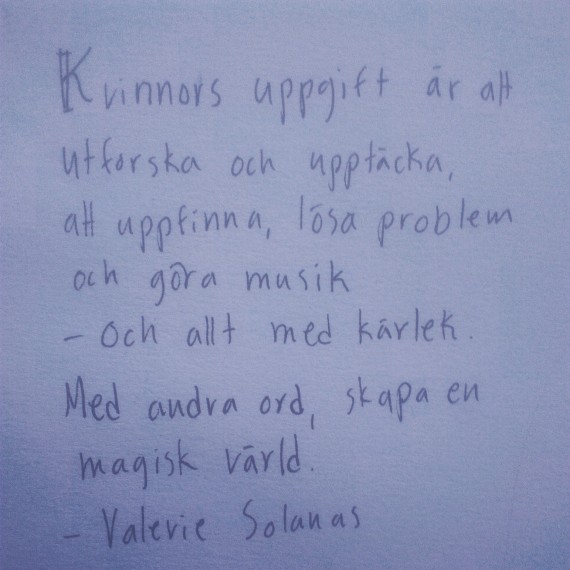 Kvinnors uppgift är att
utforska och upptäcka,
att uppfinna, lösa problem
och göra musik
- Och allt med kärlek.
Med andra ord, skapa en
magisk värld.
- Valerie Solanas